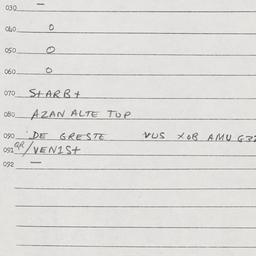 030 —
040 0
050 0
060 0
070 StARBt
080 AZAN ALTE TUP
090 DE GRESTE VUS XOB AMU G37
091 QR/VENISt
092 —